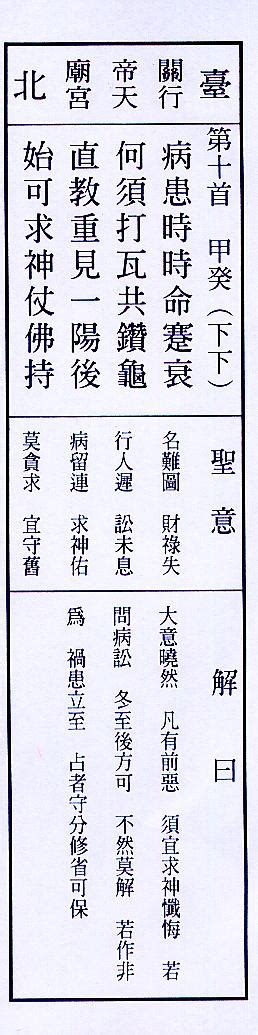 臺北
行天宮
關帝廟
第十首　甲癸（下下）
病患時時命蹇衰
何須打瓦共鑽龜
直教重見一陽後
始可求神仗佛持
聖意
名難圖　財祿失
行人遲　訟未息
病留連　求神佑
莫貪求　宜守舊
解曰
大意曉然　凡有前惡　須宜求神懺悔　若
問病訟　冬至後方可　不然莫解　若作非
爲　禍患立至　占者守分修省可保